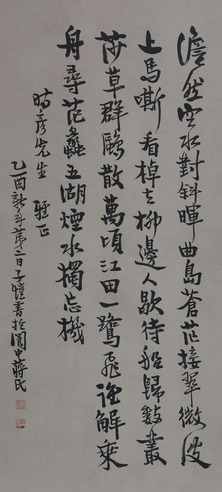 澹然空水對斜暉曲島蒼茫接翠微波
上馬嘶看棹去柳邊人歇待船歸數叢
莎草群鷗散萬頃江田一鷺飛誰解乘
舟尋范蠡五湖煙水獨忘機
時彥先生 雅正
乙酉新年第二日子愷書於閬中蔣氏